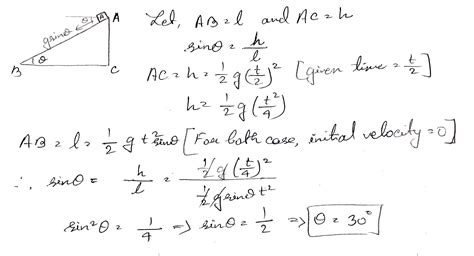 A
θ
g sinθ
B
θ
C
Let, AB = l and AC = h
sinθ = h/l
AC = h = 1/2 g (t/2)² [given time = t/2]
h = 1/2 g (t²/4)
AB = l = 1/2 g t² sinθ [For both case, initial velocity = 0]
∴ sinθ = h/l = 1/2 g (t/4)² / 1/2 g sinθ t²
sin²θ = 1/4 => sinθ = 1/2 => θ = 30°